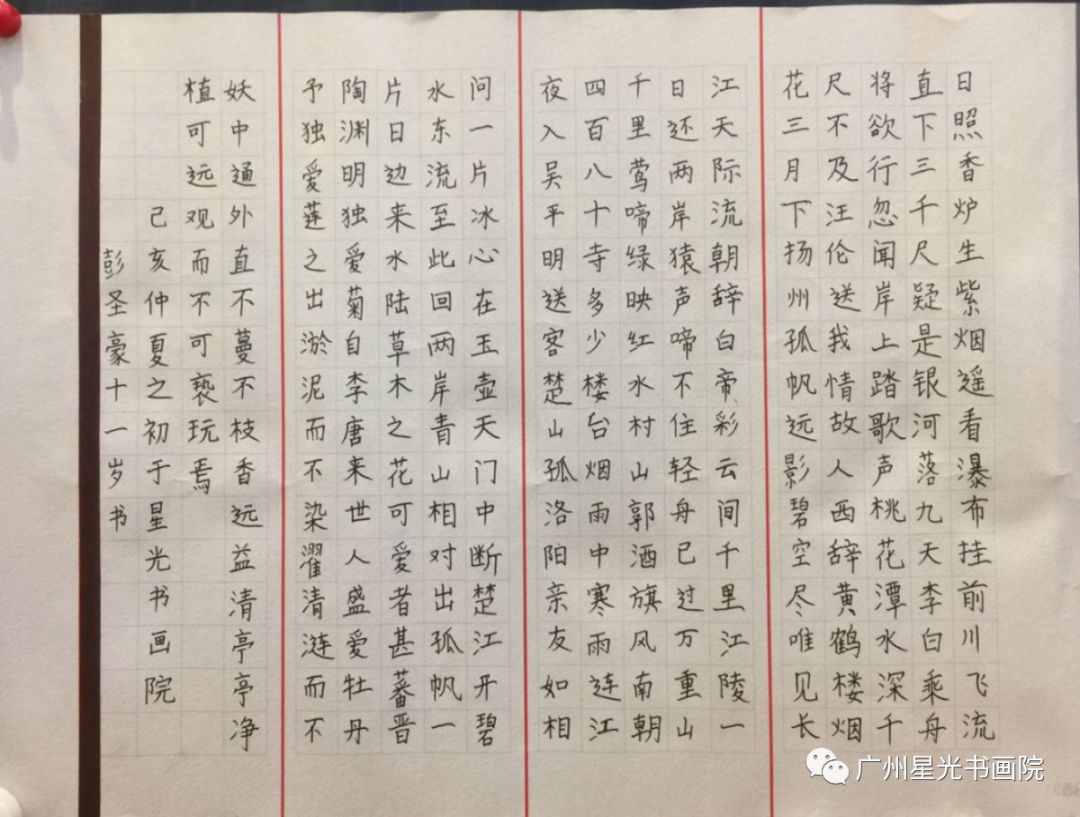 日照香炉生紫烟遥看瀑布挂前川飞流
直下三千尺疑是银河落九天李白乘舟
将欲行忽闻岸上踏歌声桃花潭水深千
尺不及汪伦送我情故人西辞黄鹤楼烟
花三月下扬州孤帆远影碧空尽唯见长
江天际流朝辞白帝彩云间千里江陵一
日还两岸猿声啼不住轻舟已过万重山
千里莺啼绿映红水村山郭酒旗风南朝
四百八十寺多少楼台烟雨中寒雨连江
夜入吴平明送客楚山孤洛阳亲友如相
问一片冰心在玉壶天门中断楚江开碧
水东流至此回两岸青山相对出孤帆一
片日边来水陆草木之花可爱者甚蕃晋
陶渊明独爱菊自李唐来世人盛爱牡丹
予独爱莲之出淤泥而不染濯清涟而不
妖中通外直不蔓不枝香远益清亭亭净
植可远观而不可亵玩焉
己亥仲夏之初于星光书画院
彭圣豪十一岁书
广州星光书画院